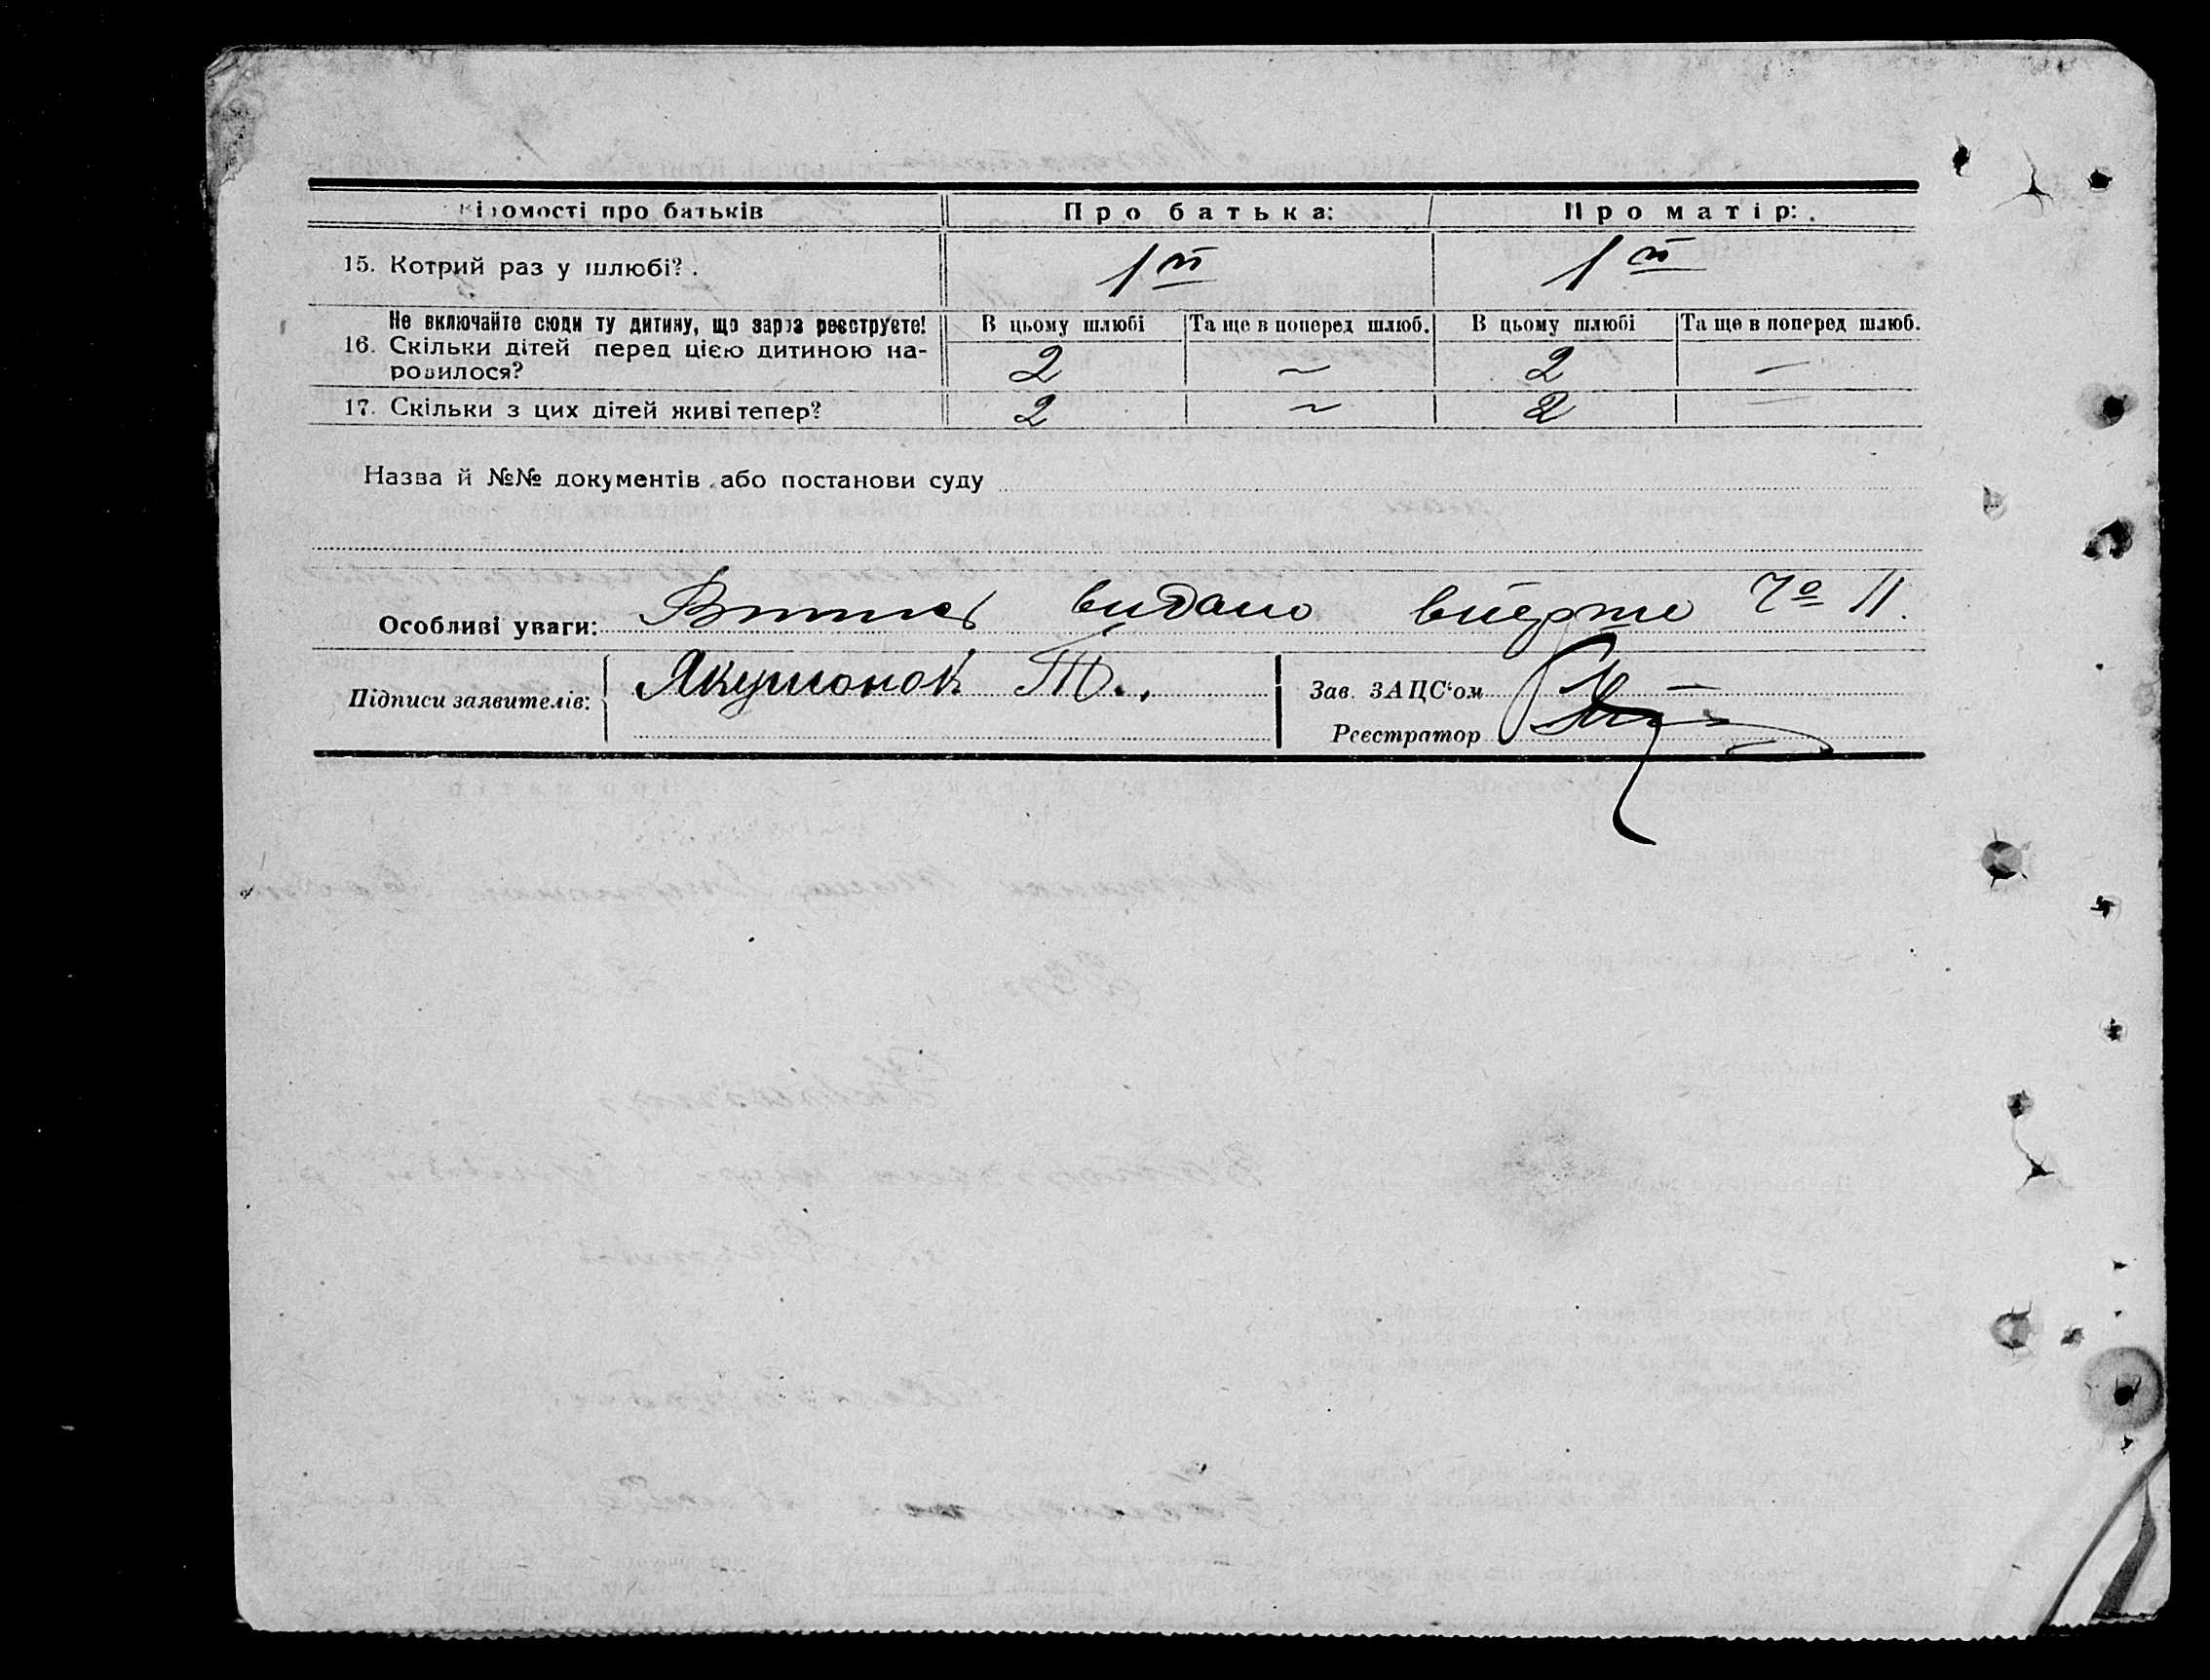 Відомості про батьків Про батька: Про матір:
15. Котрий раз у шлюбі? 1й 1й
Не включайте сюди ту дитину, що зараз реєструєте! В цьому шлюбі Та ще в поперед шлюб. В цьому шлюбі Та ще в поперед шлюб.
16. Скільки дітей перед цією дитиною на-
родилося? 2 ~ 2 —
17. Скільки з цих дітей живі тепер? 2 ~ 2 —
Назва й №№ документів або постанови суду
Особливі уваги: Витяг видано вперше № 11.
Підписи заявителів: Якушонок Т.
Зав. ЗАЦС'ом
Реєстратор